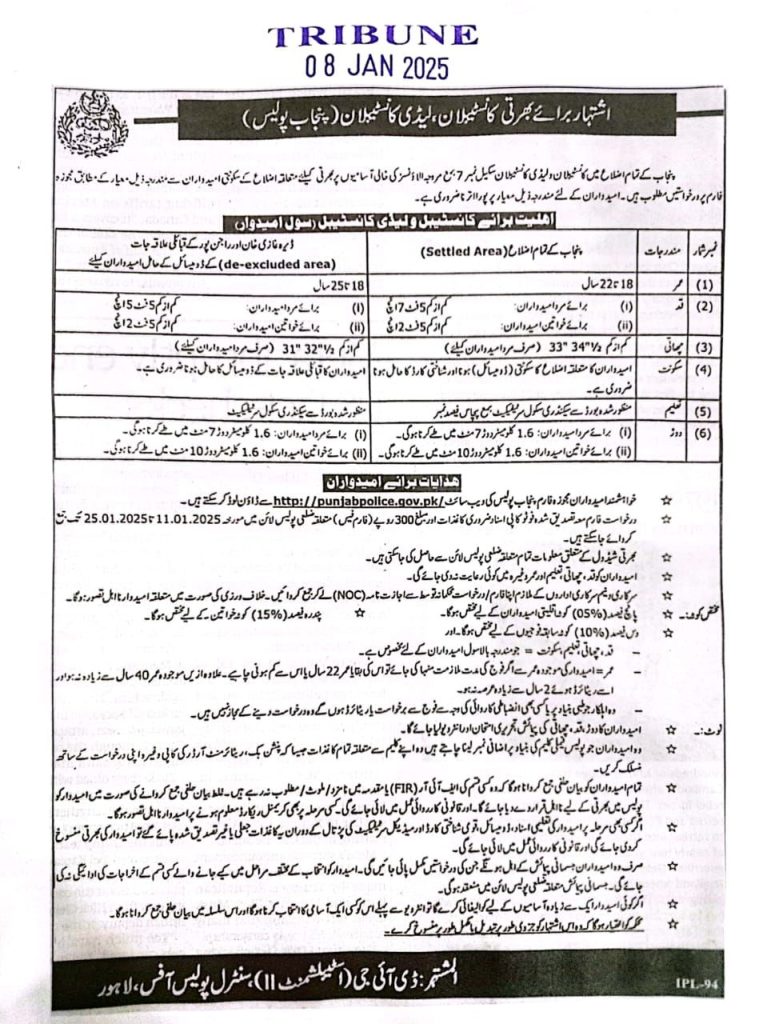 TRIBUNE
08 JAN 2025
اشتہار برائے بھرتی کانسٹیبلان، لیڈی کانسٹیبلان (پنجاب پولیس)
پنجاب کے تمام اضلاع میں کانسٹیبلان و لیڈی کانسٹیبلان سکیل نمبر 7 بمع مروجہ الاؤنسز کی خالی آسامیوں پر بھرتی کیلئے متعلقہ اضلاع کے سکونتی امیدواران سے مندرجہ ذیل معیار کے مطابق مجوزہ
فارم پر درخواستیں مطلوب ہیں۔ امیدواران کے لئے مندرجہ ذیل معیار پر پورا اترنا ضروری ہے۔
اہلیت برائے کانسٹیبل و لیڈی کانسٹیبل (سول امیدوار)
نمبر شمار مندرجات پنجاب کے تمام اضلاع (Settled Area) ڈیرہ غازی خان اور راجن پور کے قبائلی علاقہ جات
(de-excluded area) کے ڈومیسائل کے حامل امیدواران کیلئے
(1) عمر 18 تا 22 سال 18 تا 25 سال
(2) قد (i) برائے مرد امیدواران: کم از کم 5 فٹ 7 انچ (i) برائے مرد امیدواران: کم از کم 5 فٹ 5 انچ
(ii) برائے خواتین امیدواران: کم از کم 5 فٹ 2 انچ (ii) برائے خواتین امیدواران: کم از کم 5 فٹ 2 انچ
(3) چھاتی کم از کم 33" 34½" (صرف مرد امیدواران کیلئے) کم از کم 31" 32½" (صرف مرد امیدواران کیلئے)
(4) سکونت امیدواران کا متعلقہ اضلاع کا سکونتی (ڈومیسائل) ہونا اور شناختی کارڈ کا حامل ہونا امیدواران کا قبائلی علاقہ جات کے ڈومیسائل کا حامل ہونا ضروری ہے۔
ضروری ہے۔
(5) تعلیم منظور شدہ بورڈ سے سیکنڈری سکول سرٹیفکیٹ بمع پچاس فیصد نمبر منظور شدہ بورڈ سے سیکنڈری سکول سرٹیفکیٹ
(6) دوڑ (i) برائے مرد امیدواران: 1.6 کلومیٹر دوڑ 7 منٹ میں طے کرنا ہوگی۔ (i) برائے مرد امیدواران: 1.6 کلومیٹر دوڑ 7 منٹ میں طے کرنا ہوگی۔
(ii) برائے خواتین امیدواران: 1.6 کلومیٹر دوڑ 10 منٹ میں طے کرنا ہوگی۔ (ii) برائے خواتین امیدواران: 1.6 کلومیٹر دوڑ 10 منٹ میں طے کرنا ہوگی۔
ہدایات برائے امیدواران
☆ خواہشمند امیدواران مجوزہ فارم پنجاب پولیس کی ویب سائٹ http://punjabpolice.gov.pk/ سے ڈاؤن لوڈ کر سکتے ہیں۔
☆ درخواست فارم معہ تصدیق شدہ فوٹو کاپی اسناد ضروری کاغذات اور مبلغ 300 روپے (فارم فیس) متعلقہ ضلعی پولیس لائن میں مورخہ 11.01.2025 تا 25.01.2025 تک جمع
کروائے جا سکتے ہیں۔
☆ بھرتی شیڈول کے متعلق معلومات تمام متعلقہ ضلعی پولیس لائن سے حاصل کی جا سکتی ہیں۔
☆ امیدواران کو قد، چھاتی، تعلیم اور عمر وغیرہ میں کوئی رعایت نہ دی جائے گی۔
☆ سرکاری و نیم سرکاری اداروں کے ملازم اپنا فارم/درخواست محکمانہ توسط سے اجازت نامہ (NOC) لے کر جمع کروائیں۔ خلاف ورزی کی صورت میں متعلقہ امیدوار نا اہل تصور ہوگا۔
مختص کوٹہ:۔ ☆ پانچ فیصد (05%) کوٹہ اقلیتی امیدواران کے لیے مختص ہوگا۔ ☆ پندرہ فیصد (15%) کوٹہ خواتین کے لیے مختص ہوگا۔
☆ دس فیصد (10%) کوٹہ سابقہ فوجیوں کے لیے مختص ہوگا۔ اور
- قد، چھاتی، تعلیم، سکونت = جو مندرجہ بالا سول امیدواران کے لیے مخصوص ہے۔
- عمر = امیدوار کی موجودہ عمر سے اگر فوج کی مدت ملازمت منہا کی جائے تو اس کی بقایا عمر 22 سال یا اس سے کم ہونی چاہیے۔ علاوہ ازیں موجودہ عمر 40 سال سے زیادہ نہ ہو اور
اسے ریٹائرڈ ہوئے 2 سال سے زیادہ عرصہ نہ ہو۔
- وہ اہلکار جو طبی بنیاد پر یا کسی بھی انضباطی کاروائی کی وجہ سے فوج سے برخاست یا ریٹائرڈ ہوں گے وہ درخواست دینے کے مجاز نہیں ہیں۔
نوٹ:۔ ☆ امیدواران کا دوڑ، قد، چھاتی کی پیمائش، تحریری امتحان اور انٹرویو لیا جائے گا۔
☆ وہ امیدواران جو پولیس فیملی کلیم کی بنیاد پر اضافی نمبر لینا چاہتے ہیں وہ اپنے کلیم سے متعلقہ تمام کاغذات جیسا کہ پنشن بک، ریٹائرمنٹ آرڈر کی کاپی وغیرہ اپنی درخواست کے ساتھ
منسلک کریں۔
☆ تمام امیدواران کو بیان حلفی جمع کروانا ہوگا کہ وہ کسی قسم کی ایف آئی آر (FIR) یا مقدمہ میں نامزد/ملوث/مطلوب نہ رہے ہیں۔ غلط بیان حلفی جمع کروانے کی صورت میں امیدوار کو
پولیس میں بھرتی کے لیے نا اہل قرار دے دیا جائے گا۔ اور قانونی کاروائی عمل میں لائی جائے گی۔ کسی مرحلہ پر بھی کریمنل ریکارڈ معلوم ہونے پر امیدوار نا اہل تصور ہوگا۔
☆ اگر کسی بھی مرحلہ پر امیدوار کی تعلیمی اسناد، ڈومیسائل، قومی شناختی کارڈ اور میڈیکل سرٹیفکیٹ کی پڑتال کے دوران یہ کاغذات جعلی یا غیر تصدیق شدہ پائے گئے تو امیدوار کی بھرتی منسوخ
کر دی جائے گی اور قانونی کاروائی عمل میں لائی جائے گی۔
☆ صرف وہ امیدواران جسمانی پیمائش کے اہل ہونگے جن کی درخواستیں مکمل پائی جائیں گی۔ امیدوار کو انتخاب کے مختلف مراحل میں کیے جانے والے کسی قسم کے اخراجات کی ادائیگی نہ کی
جائے گی۔ جسمانی پیمائش متعلقہ ضلعی پولیس لائن میں منعقد ہوگی۔
☆ اگر کوئی امیدوار ایک سے زیادہ آسامیوں کے لیے کوالیفائی کرے گا تو انٹرویو سے پہلے اس کو کسی ایک آسامی کا انتخاب کرنا ہوگا اور اس سلسلہ میں بیان حلفی جمع کروانا ہوگا۔
☆ محکمہ کو اختیار ہوگا کہ وہ اس اشتہار کو جزوی طور پر تبدیل یا مکمل طور پر منسوخ کرے۔
المشتہر: ڈی آئی جی (اسٹیبلشمنٹ II)، سنٹرل پولیس آفس، لاہور
IPL-94